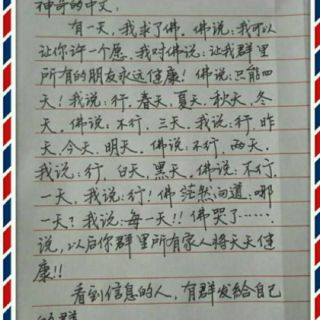 神奇的中文:
有一天,我求了佛。佛说:我可以
让你许一个愿,我对佛说:让我群里
所有的朋友永远健康!佛说:只能四
天!我说:行,春天,夏天,秋天,冬
天。佛说:不行,三天。我说:行,昨
天,今天,明天。佛说:不行,两天,
我说:行,白天,黑天。佛说:不行,
一天,我说:行!佛茫然问道:哪
一天?我说:每一天!!佛哭了……
说,以后你群里所有家人将天天健
康!!
看到信息的人,有群发给自己